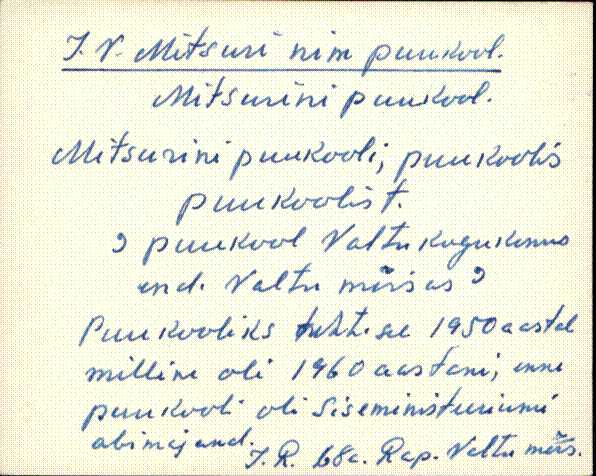 I. V. Mitsuri nim puukool.
Mitsurini puukool.
Mitsurini puukooli, puukoolis
puukoolist.
puukool Valtu kogukonnas
end. Valtu mõisas
Puukooliks tehti see 1950 aastal
milline oli 1960 aastani, enne
puukooli oli Siseministeeriumi
abimajand.
I. R. 68a. Rap. Valtu mõis.